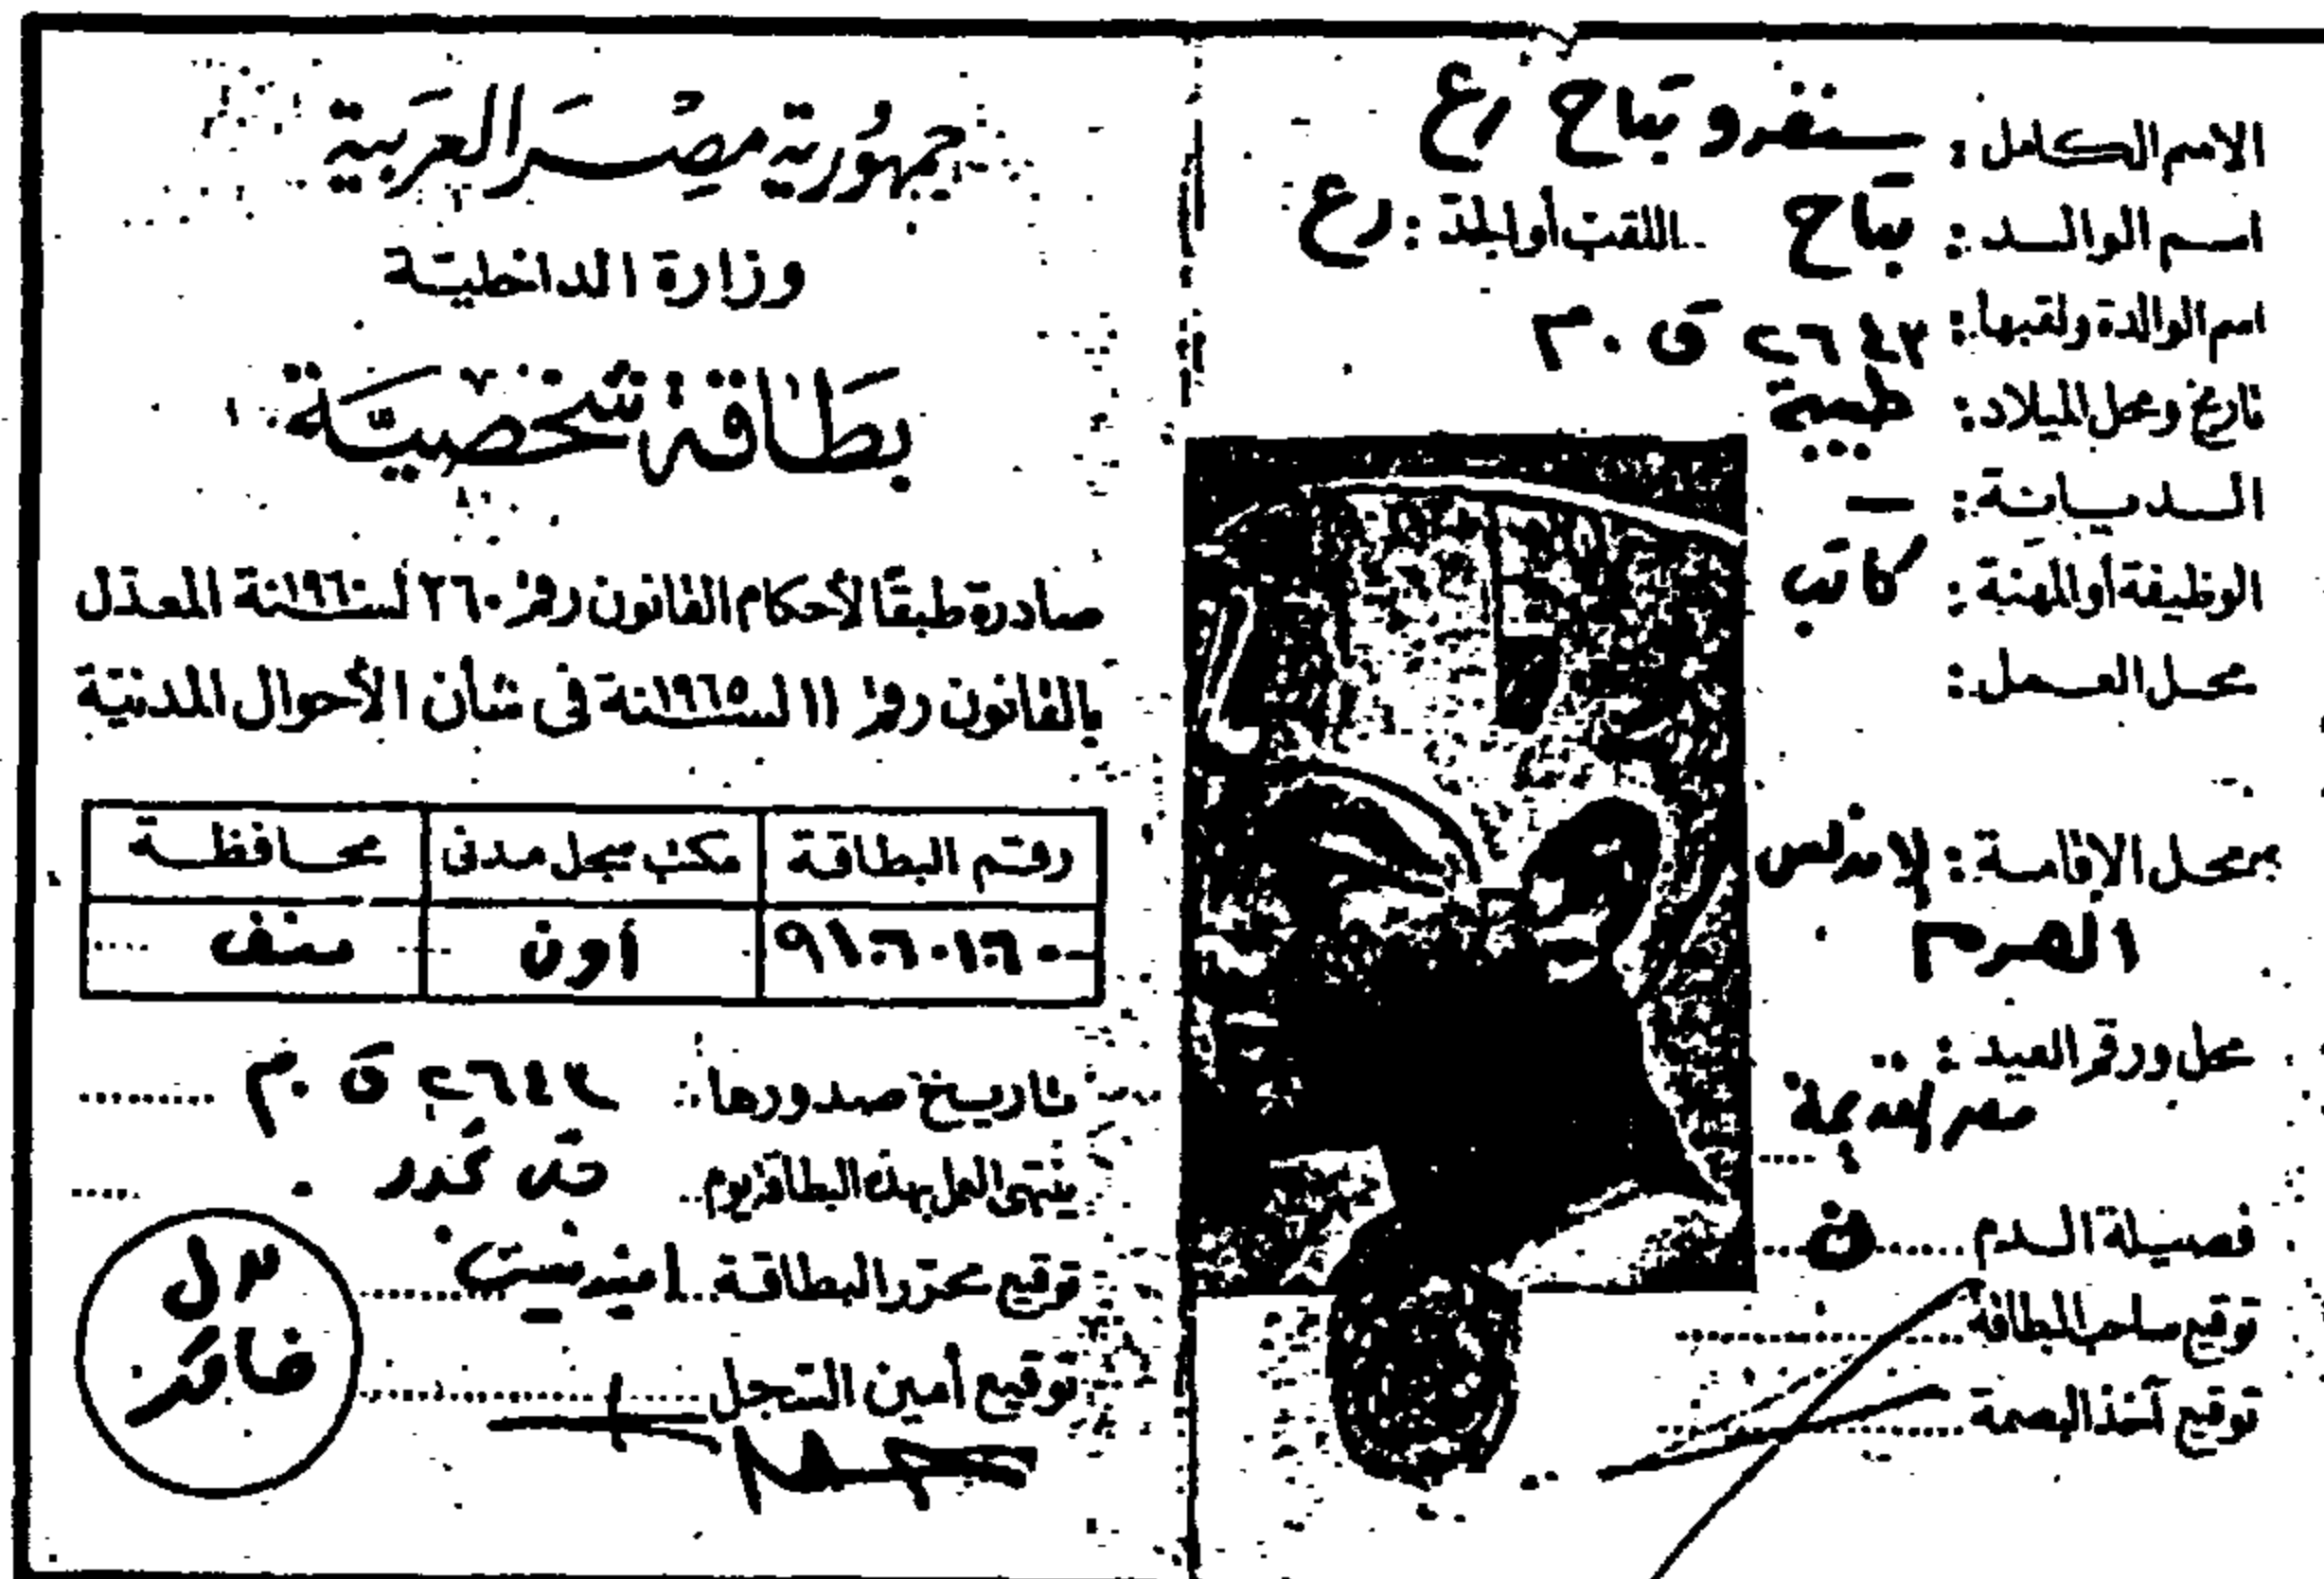 الاسم الكامل: سنفرو بتاح رع
اسم الوالد: بتاح اللقب أو الجد: رع
اسم الوالدة ولقبها: ٢٦٤٣ ق.م
تاريخ ومحل الميلاد: طيبة
الديانة: —
الوظيفة أو المهنة: كاتب
محل العمل:
محل الإقامة:
الهرم
محل ورقم القيد:
مصر القديمة
فصيلة الدم ن
توقيع صاحب البطاقة
توقيع آخذ البصمة
جمهورية مصر العربية
وزارة الداخلية
بطاقة شخصية
صادرة طبقًا لأحكام القانون رقم ٢٦٠ لسنة ١٩٦٠ المعدل
بالقانون رقم ١١ لسنة ١٩٦٥ في شأن الأحوال المدنية
رقم البطاقة مكتب سجل مدنى محافظة
أون منف
تاريخ صدورها: ٢٦٤٢ ق.م
ينتهى العمل بهذه البطاقة يوم
توقيع محرر البطاقة
توقيع أمين السجل